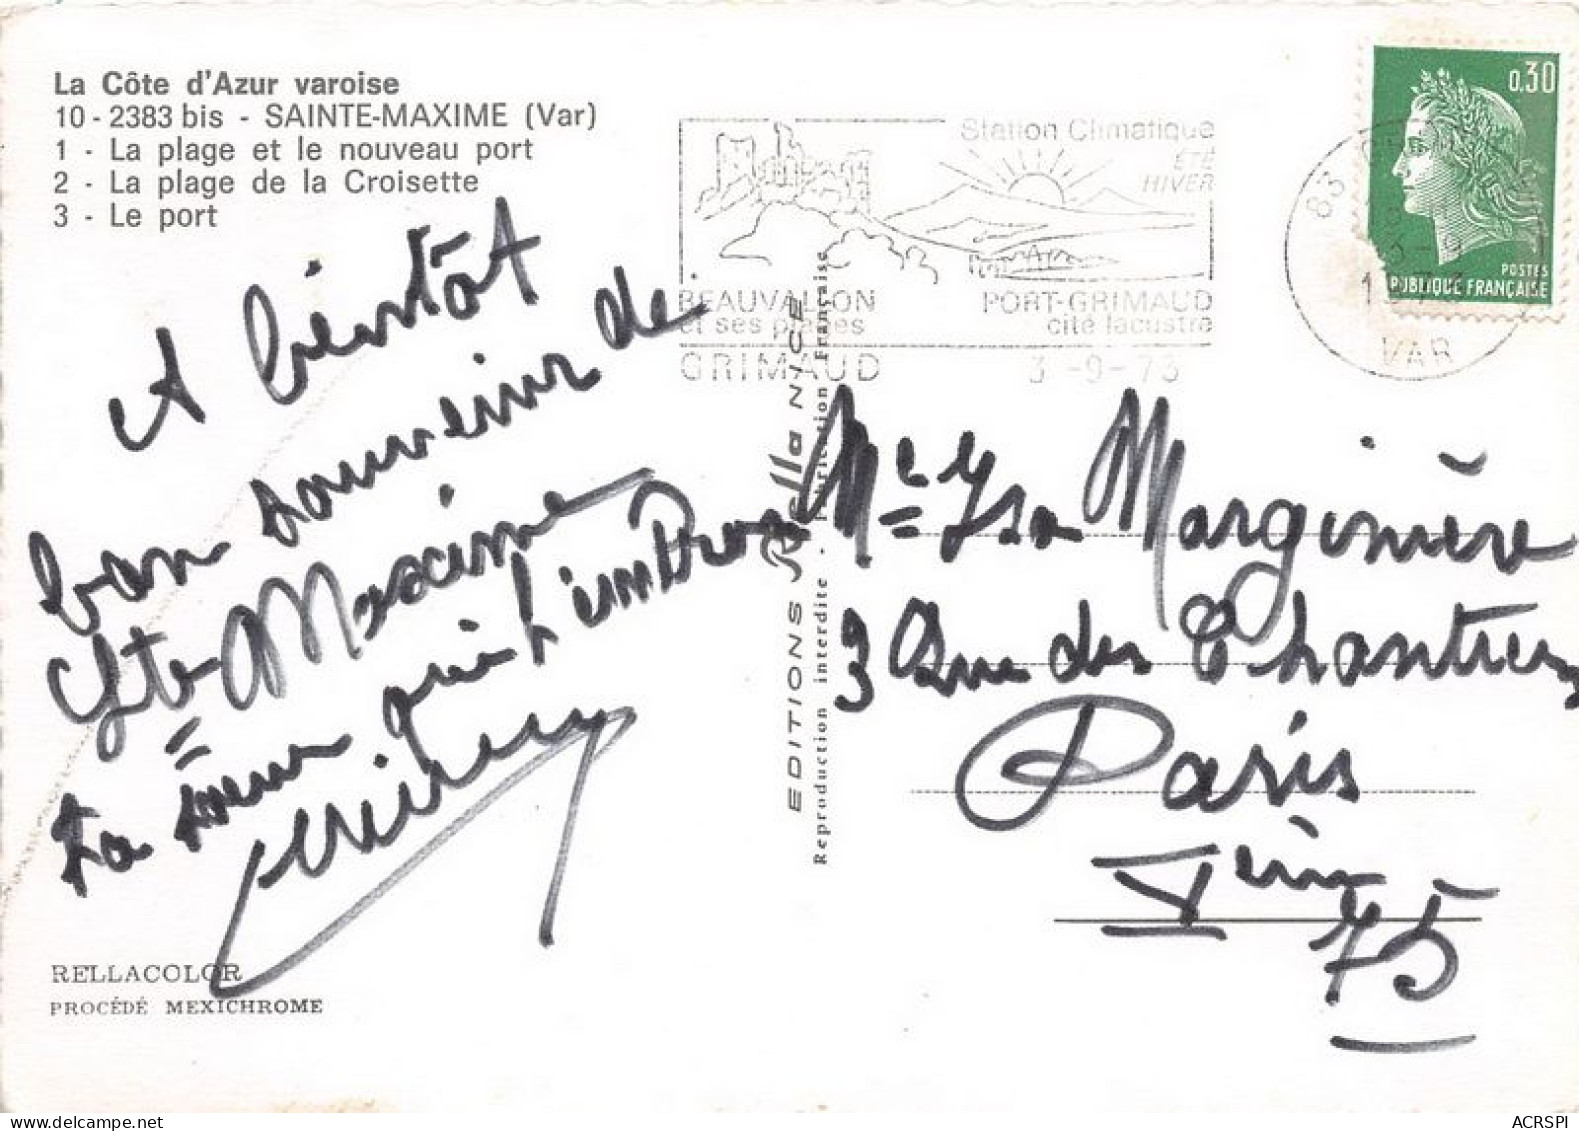 La Côte d'Azur varoise
10 - 2383 bis - SAINTE-MAXIME (Var)
1 - La plage et le nouveau port
2 - La plage de la Croisette
3 - Le port
A bientôt
bon souvenir de
Ste Maxime
ta soeur qui t'embrasse
RELLACOLOR
PROCÉDÉ MEXICHROME
EDITIONS Rella NICE
Reproduction interdite - Fabrication Française
Station Climatique
ÉTÉ
HIVER
BEAUVALLON
et ses plages
PORT-GRIMAUD
cité lacustre
GRIMAUD
3 -9 -73
83
VAR
0,30
POSTES
RÉPUBLIQUE FRANÇAISE
Me Ysa Marginière
3 Rue des Chantiers
Paris
Vème
75
ACRSPI